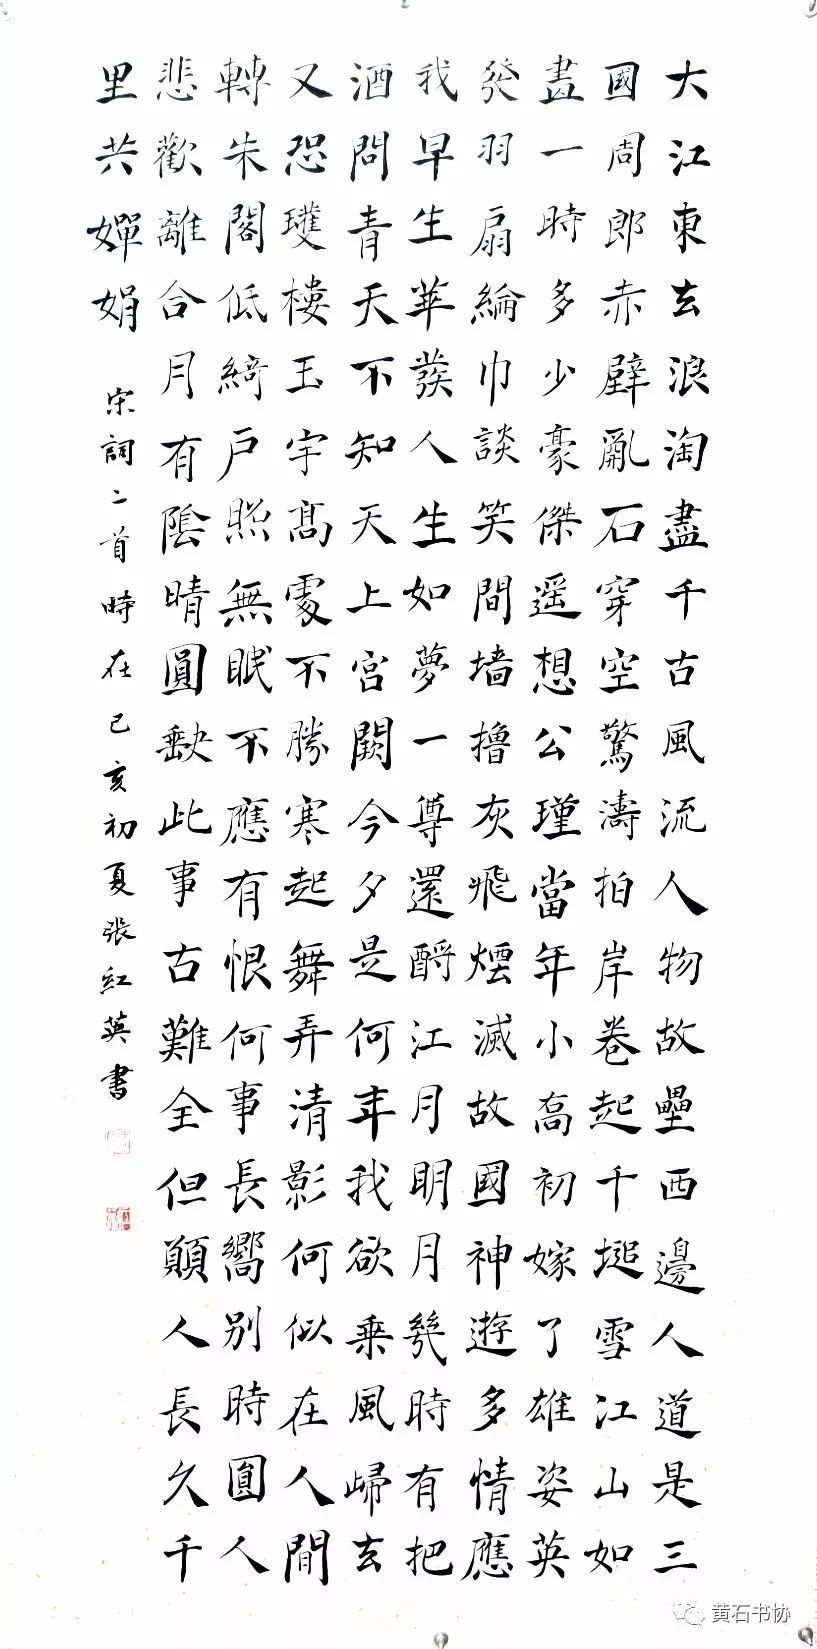 大江東去浪淘盡千古風流人物故壘西邊人道是三
國周郎赤壁亂石穿空驚濤拍岸卷起千堆雪江山如
畫一時多少豪傑遥想公瑾當年小喬初嫁了雄姿英
發羽扇綸巾談笑間墙擼灰飛煙滅故國神遊多情應
我早生華發人生如夢一尊還酹江月明月幾時有把
酒問青天不知天上宮闕今夕是何年我欲乘風歸去
又恐瓊樓玉宇高處不勝寒起舞弄清影何似在人間
轉朱閣低綺户照無眠不應有恨何事長嚮别時圓人
悲歡離合月有陰晴圓缺此事古難全但願人長久千
里共嬋娟
宋詞二首時在己亥初夏張紅英書
黄石书协